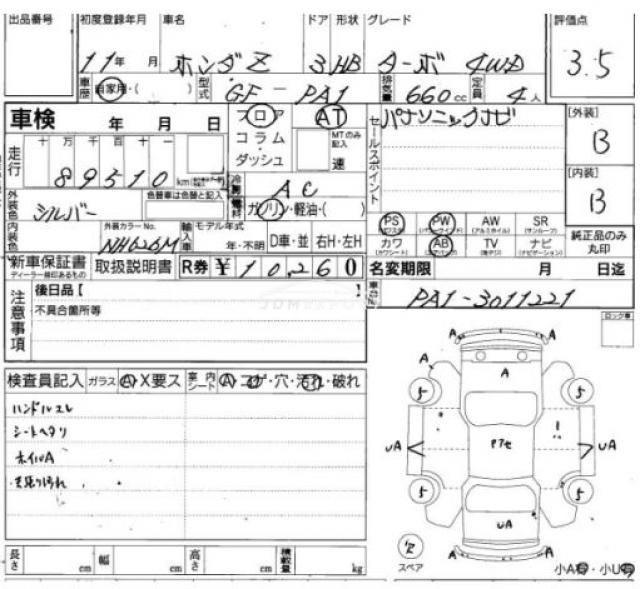 出品番号 初度登録年月 車名 ドア 形状 グレード 評価点
11年 月 ホンダZ 3 HB ターボ 4WD 3.5
車歴 自家用・( ) 型式 GF-PA1 排気量 660cc 定員 4人
車検 年 月 日 フロア AT セールスポイント パナソニックナビ [外装]
コラム・ MTのみ記入 B
走行 十 万 千 百 十 一 ダッシュ 速
89510 km 冷房 AC [内装]
外装色 シルバー 色替車は色替と記入 燃料 ガソリン・軽油・( ) B
内装色 外装カラーNo. NH626M 輸入車 モデル年式 年・不明 D車・並 右H・左H
PS PW AW SR 純正品のみ丸印
(パワステ) (パワーウインド) (アルミホイル) (サンルーフ)
カワ AB TV ナビ
(カワシート) (エアバック) (テレビ) (ナビゲーション)
新車保証書 ディーラー捺印あるもの 取扱説明書 R券 ¥10,260 名変期限 月 日迄
注意事項 後日品【 】 車台No. PA1-3011221
不具合箇所等
ロック車
検査員記入 ガラス A X要ス 室内シート A・コゲ・穴・汚れ・破れ
ハンドルスレ
シートヘタリ
ホイルA
天張り汚れ
A A
A
A A
5 5
UA アアセ UA
5 5
UA
A A
スペア 小A有・小U有
長さ cm 幅 cm 高さ cm 積載量 kg
JDM